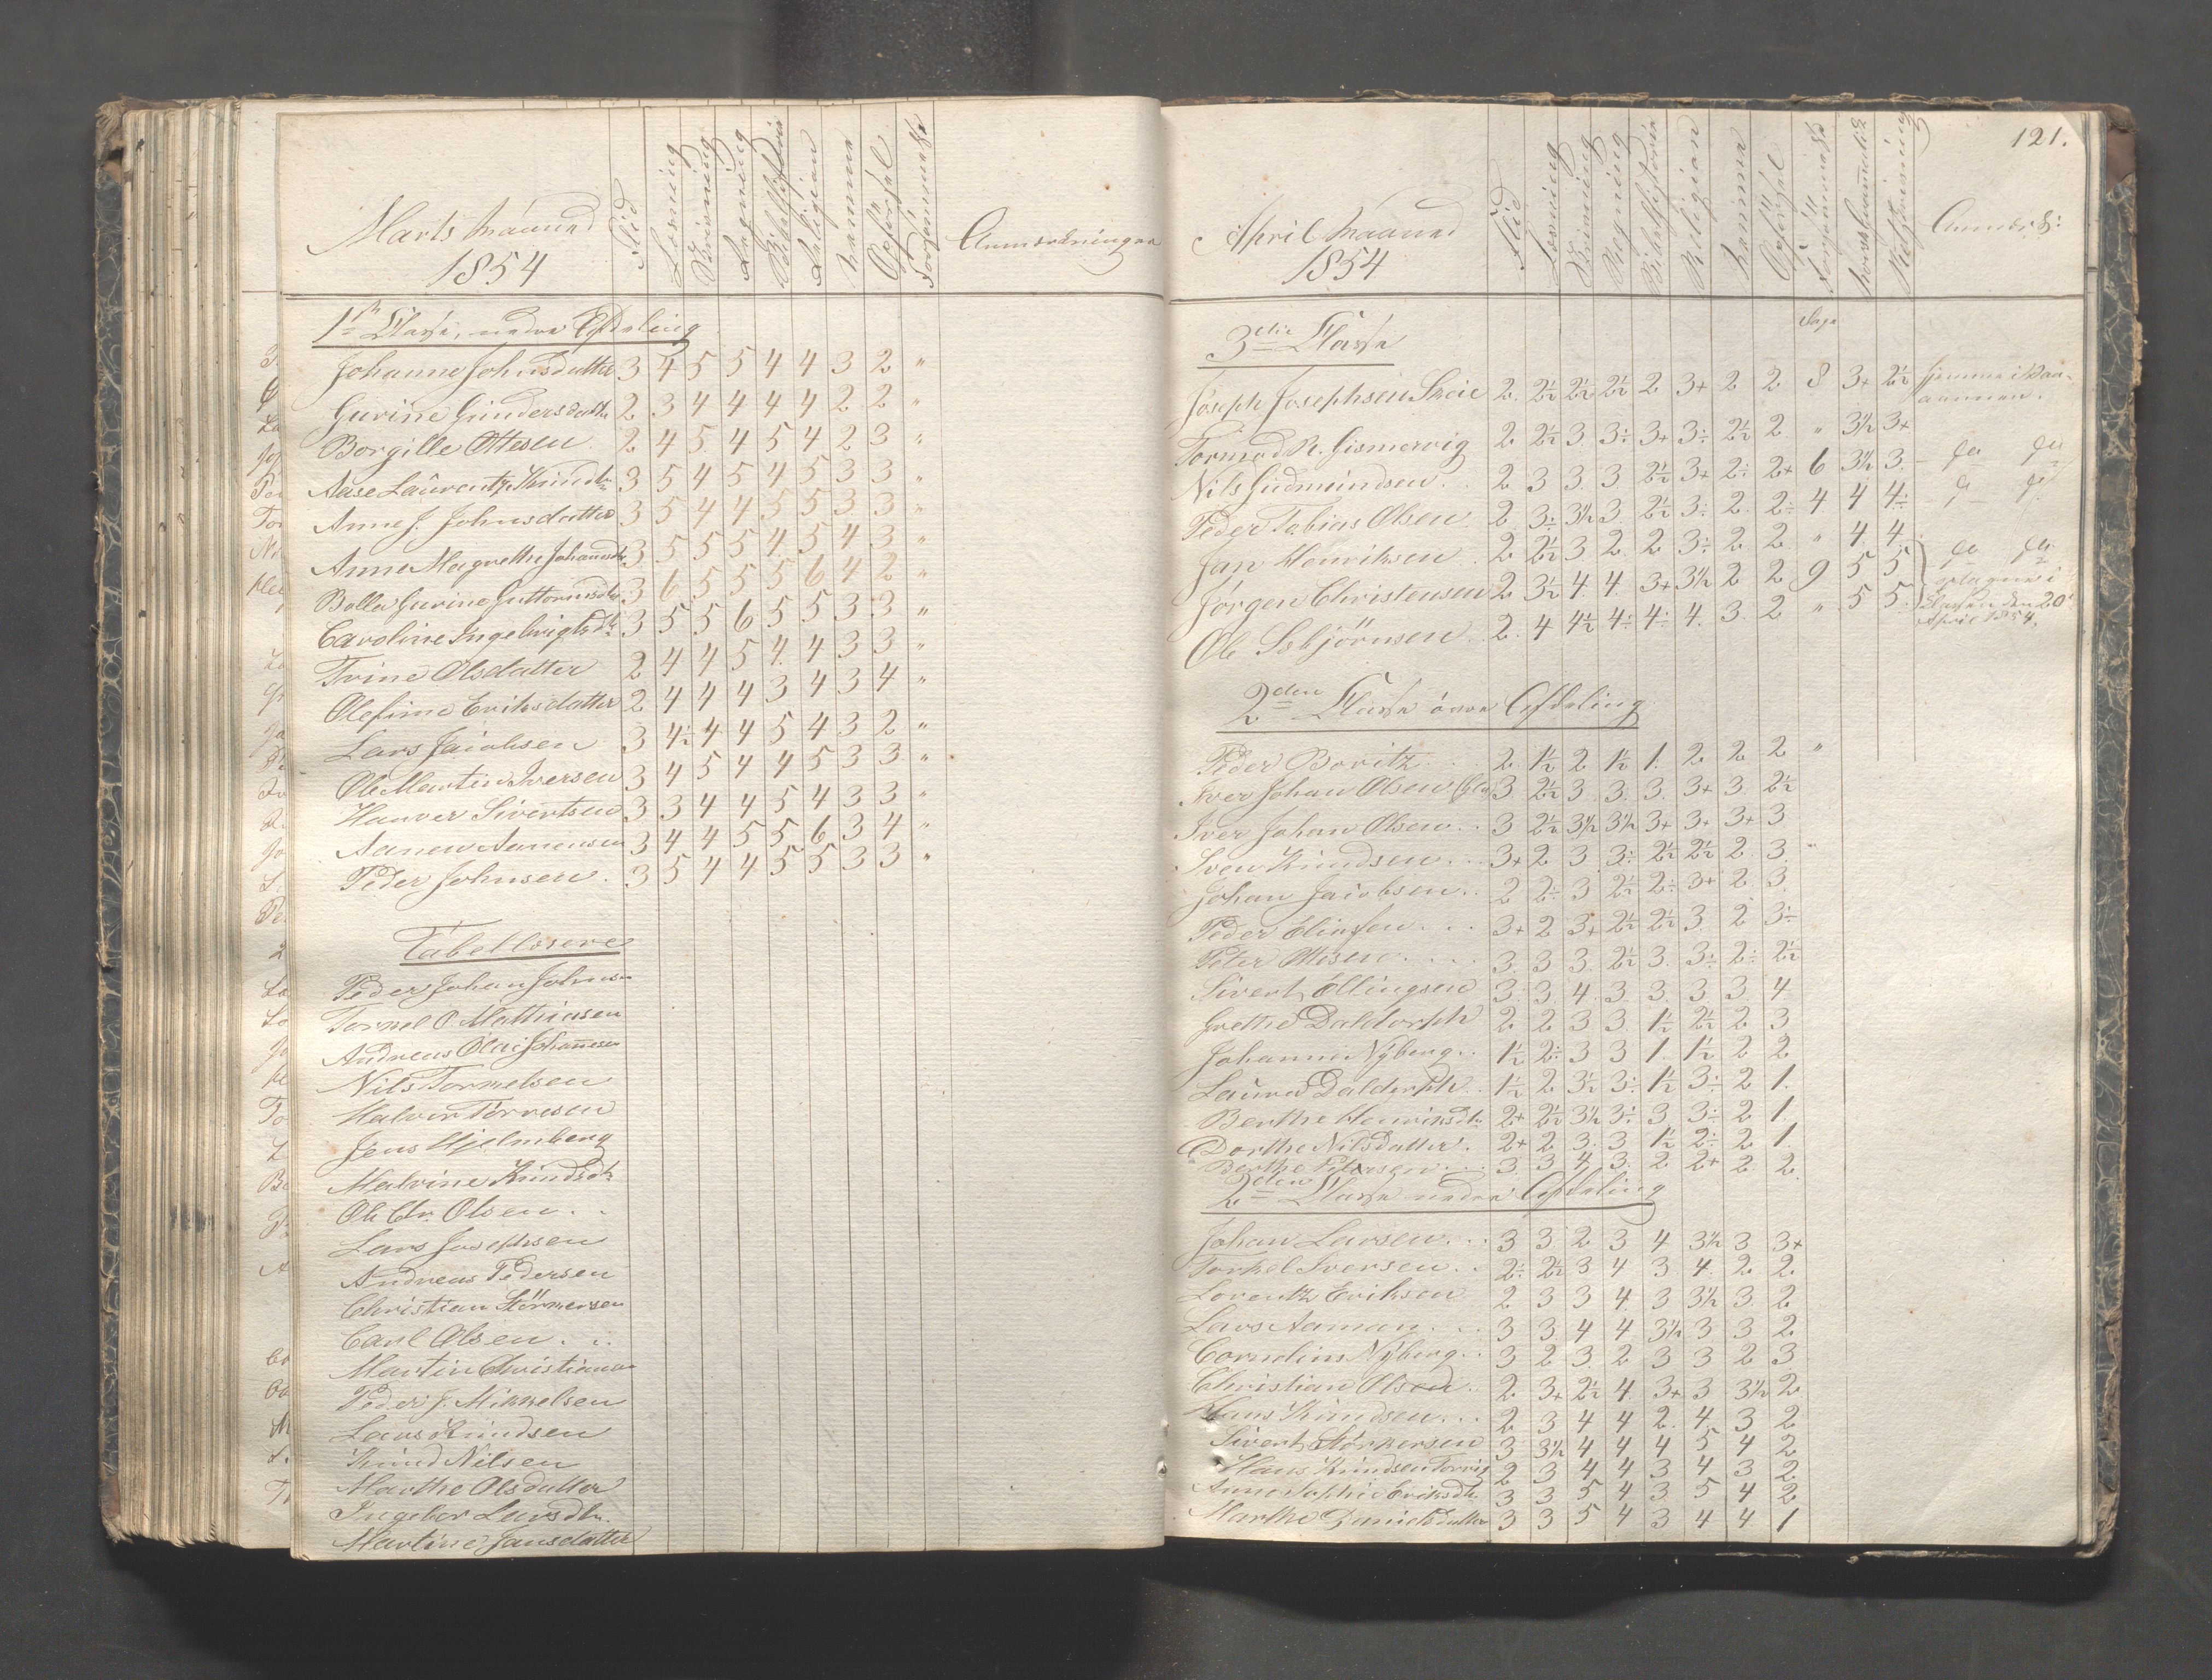 Marts Maaned
1854
Flid
Læsning
Skrivning
Regning
Bibelhistorie
Religion
Nemme
Opförsel
Forsømmelse
Anmærkninger
1ste Classe, nedre Afdeling
Johanne Johnsdatter 3 4 5 5 4 4 3 2 "
Gurine Gundersdatter 2 3 4 4 4 4 2 2 "
Borgille Ottesen 2 4 5 4 5 4 2 3 "
Aase Laurentze Knudtr 3 5 4 5 4 5 3 3 "
Anne J. Johnsdatter 3 5 4 4 5 5 3 3 "
Anne Magrethe Johannsdtr 3 5 5 5 4 5 4 3 "
Bolle Gurine Guttormsdtr 3 6 5 5 5 6 4 2 "
Caroline Ingebrigtsdtr 3 5 5 6 5 5 3 3 "
Trine Olsdatter 2 4 4 5 4 4 3 3 "
Olefine Eriksdatter 2 4 4 4 3 4 3 4 "
Lars Jacobsen 3 4½ 4 4 5 4 3 2 "
Ole Martin Iversen 3 4 5 4 4 5 3 3 "
Hanver Sivertsen 3 3 4 4 5 4 3 3 "
Aanen Aanensen 3 4 4 5 5 6 3 4 "
Peder Johnsen. 3 5 4 4 5 5 3 3 "
Tabellæsere
Peder Johan Johnsen
Tormel O Mathiasen
Andreas Olai Johannesen
Nils Tormelsen
Halvor Törresen
Jens Hjelmberg
Malvine Knudsdtr
Ole Chr. Olsen . .
Lars Josephsen
Andreas Pedersen
Christian Störkersen
Carl Olsen . . .
Martin Christiansen
Peder J. Mikkelsen
Lars Knudsen
Knud Nilsen
Marthe Olsdatter
Ingebor Larsdtr.
Martine Jansdatter
121.
April Maaned
1854
Flid
Læsning
Skrivning
Regning
Bibelhistorie
Religion
Nemme
Opförsel
Forsömmelse
Retskrivning
Anmærk:
Dage
3die Classe
Joseph Josephsen Skeie 2. 2½ 2½ 2½ 2 3+ 2 2 8 3+ 2½ hjemme i Vaa-
aannen.
Tormod R. Gismervig 2 2½ 3 3÷ 3+ 3÷ 2½ 2 " 3½ 3+
Nils Gudmundsen. . 2 3 3. 3 2½ 3+ 2÷ 2+ 6 3½ 3.
Peder Tobias Olsen. 2 3÷ 3½ 3. 2½ 3÷ 2. 2÷ 4 4 4÷
Jan Henriksen . 2 2½ 3 2 2 3÷ 2 2 " 4 4
Jörgen Christensen 2 3½ 4. 4. 3+ 3½ 2 2 9 5 5
Ole Esbjörnsen. 2. 4 4½ 4÷ 4÷ 4. 3. 2 " 5 5.
Classen den 20
April 1854.
2den Classe övre Afdeling
Peder Boritz . . . 2 1½ 2 1½ 1. 2 2 2 "
Iver Johan Olsen 3 2½ 3 3. 3. 3+ 3 2½
Iver Johan Olsen . . 3 2½ 3½ 3½ 3+ 3+ 3+ 3
Sven Knudsen . . . 3+ 2 3 3÷ 2½ 2½ 2. 3. "
Johan Jacobsen . . 2 2÷ 3 2½ 2÷ 3+ 2. 3.
Peder Eliasen . . . 3+ 2 3+ 2½ 2½ 3. 2 3÷
Peter Olsen . . . . 3. 3 3. 2½ 3. 3÷ 2÷ 2½
Sivert Ellingsen 3. 3. 4. 3. 3. 3. 3. 4
Grethe Daldorph 2 2 3 3. 1½ 2½ 2 3
Johanne Nÿberg . . 1½ 2÷ 3 3 1 1½ 2 2
Laura Daldorph . . 1½ 2 3½ 3÷ 1½ 3÷ 2 1.
Berthe Henriksdtr 2+ 2½ 3½ 3÷ 3. 3÷ 2 1.
Dorthe Nilsdatter . 2+ 2 3. 3 1½ 2÷ 2 1.
Berthe Petersen . . . 3. 3 4 3. 2 2+ 2. 2.
2den Classe nedre Afdeling
Johan Larsen . . . 3 3 2 3 4 3½ 3 3+
Torkel Iversen . . 2÷ 2½ 3 4 3 4. 2 2.
Lorentz Eriksen 2 3 3 4. 3 3½ 3. 2
Lars Aaman . . . 3 3. 4 4 3½ 3 3 2
Cornelius Nÿberg . . 3 2 3. 2 3 3 2 3
Christian Olsen . 2 3+ 2½ 4. 3+ 3 3½ 2
Hans Knudsen . . . 2 3 4 4 2. 4. 3 2
Sivert Störkersen 3 3½ 4 4 4 5 4 2
Hans Knudsen Torvig 2 3 4 4 3 4 3 2
Anne Sophie Eriksdtr 3 3 5 4 3 5 4 2
Marthe Danielsdatter 3 3 5 4 3 4 4 1